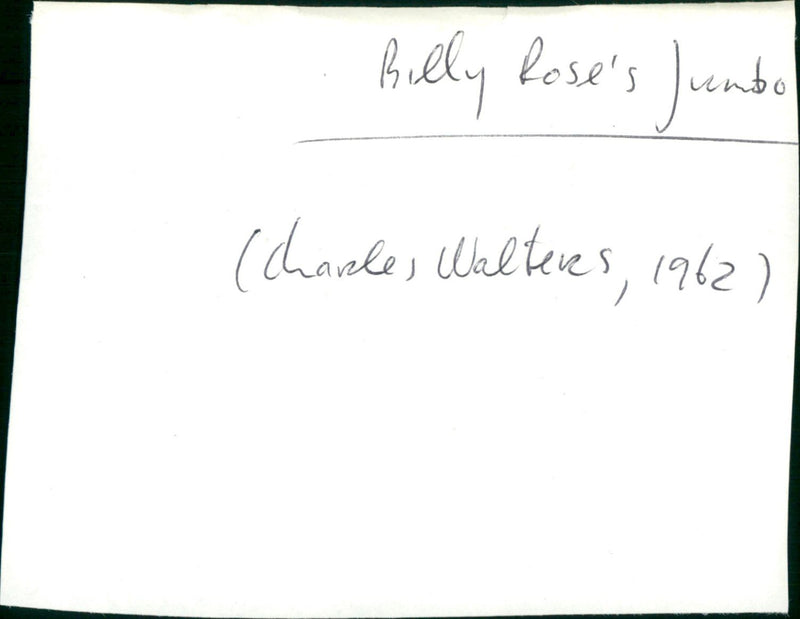 Billy Rose's Jumbo
(Charles Walters, 1962)